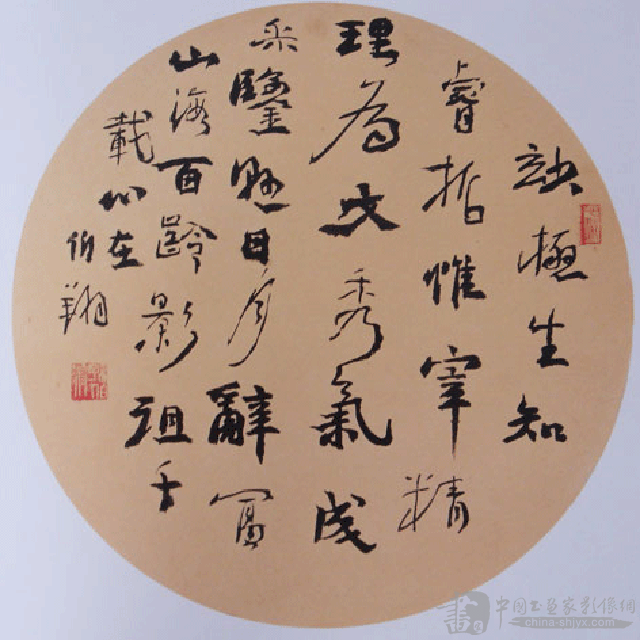 妙極生知
睿哲惟宰精
理為文秀氣成
采鑒懸日月辭富
山海百齡影徂千
載心在
伯翔
中国书画家影像网
china-shjyx.com